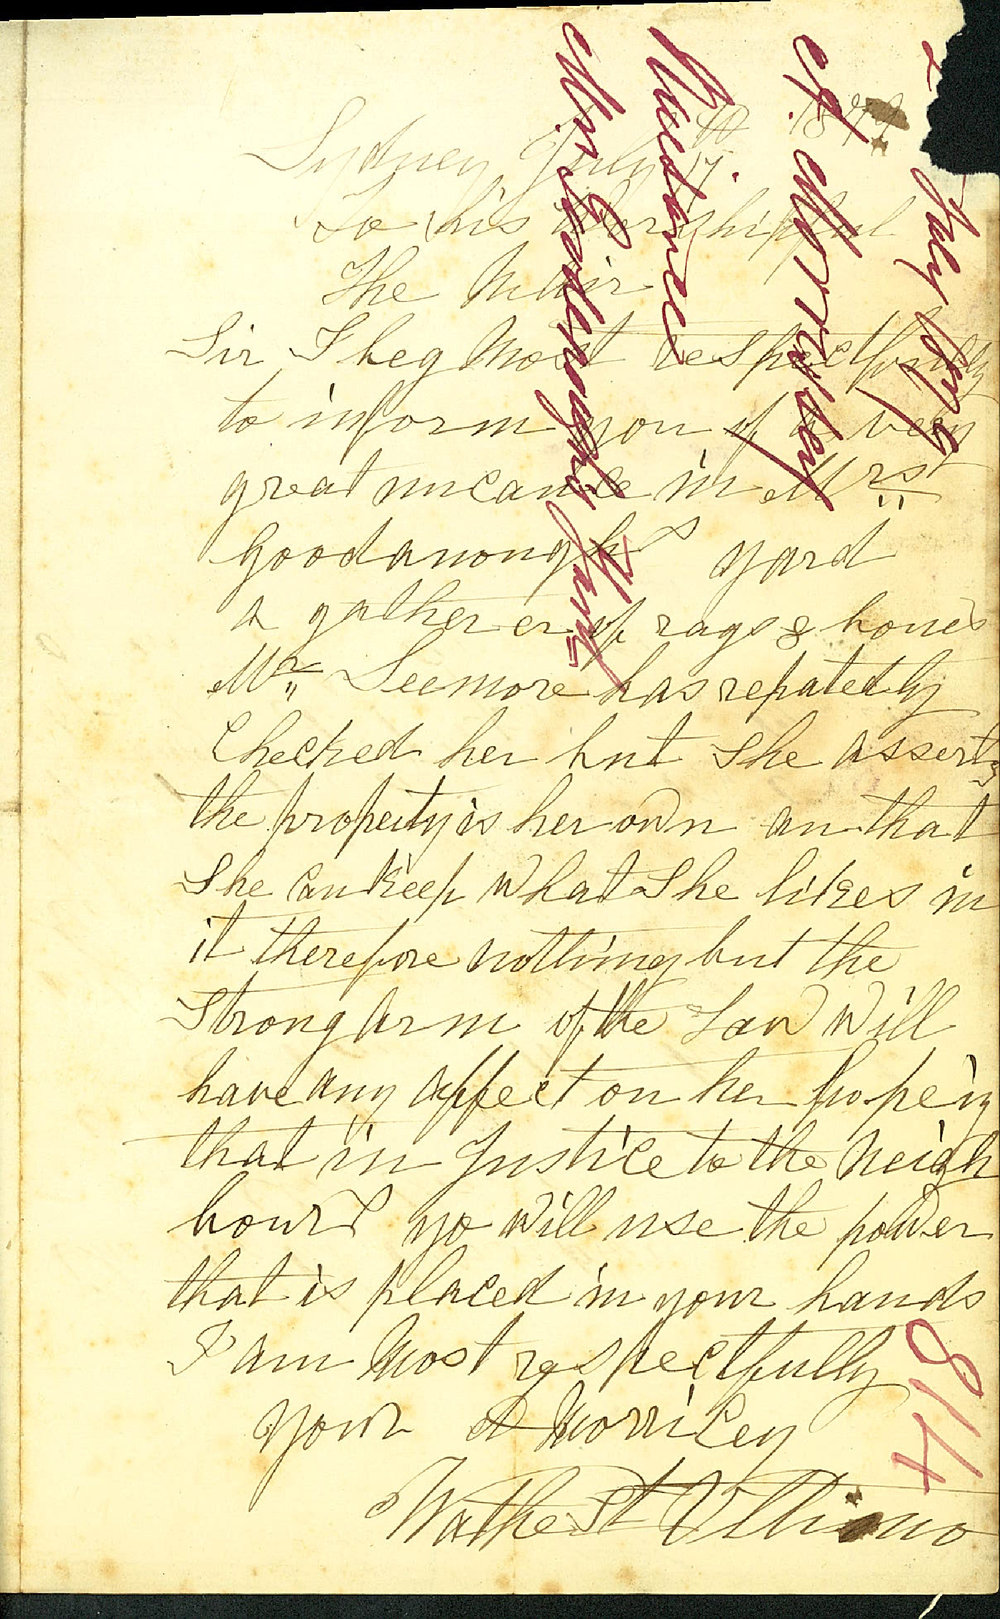 Sydney July 17th 1879
To his Worshipful
The Mair
Sir I beg Most respectfully
to inform you of a very
great nucance in Mrs
Goodanough's yard
a gatherer of rags & bones
Mr Seemore has repatedly
Checked her but She asserts
the property is her own an that
She can Keep What She likes in
it therefore nothing but the
Strong Arm of the Law Will
have any affect on her hopeing
that in Justice to the Neigh
bours yo will use the power
that is placed in your hands
I am Most respectfully
your A Morricey
St Ultimo
July 1879
Morrisey
Nuisance
Mrs Goodenough's Yard
814